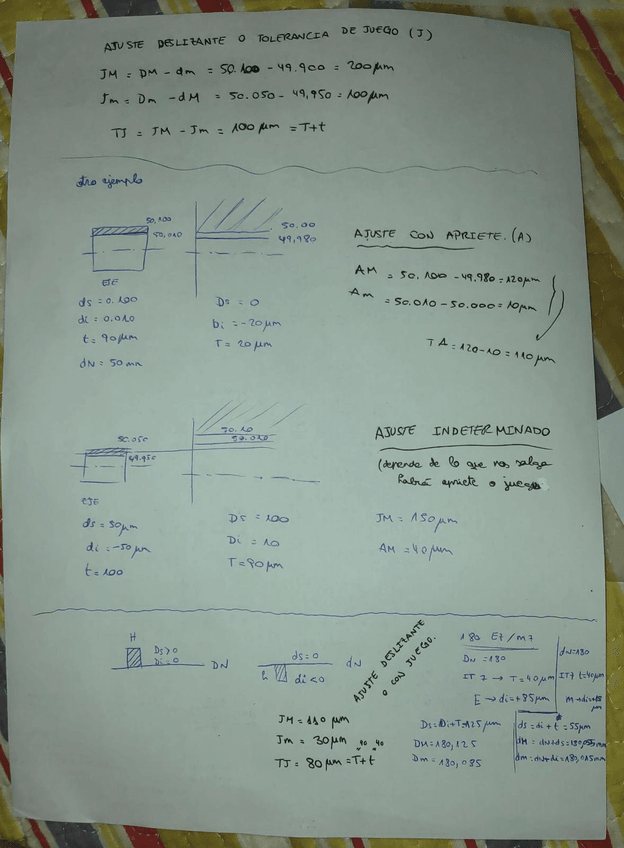 AJUSTE DESLIZANTE O TOLERANCIA DE JUEGO (J)
JM = DM - dm = 50.100 - 49.900 = 200 μm
Jm = Dm - dM = 50.050 - 49,950 = 100 μm
TJ = JM - Jm = 100 μm = T+t
otro ejemplo
50.100
50.010
EJE
ds = 0.100
di = 0.010
t = 90 μm
dN = 50 mm
50.00
49,980
Ds = 0
Di = -20 μm
T = 20 μm
AJUSTE CON APRIETE. (A)
AM = 50.100 - 49.980 = 120 μm
Am = 50.010 - 50.000 = 10 μm
TA = 120 - 10 = 110 μm
50.050
49.950
EJE
ds = 50 μm
di = -50 μm
t = 100
50.10
50.010
Ds = 100
Di = 10
T = 90 μm
AJUSTE INDETERMINADO
(depende de lo que nos salga
habrá apriete o juego
JM = 150 μm
AM = 40 μm
H
Ds > 0
Di = 0
DN
ds = 0
h
di < 0
dN
AJUSTE DESLIZANTE
O CON JUEGO.
JM = 110 μm
Jm = 30 μm
40 40
TJ = 80 μm = T+t
180 E7/m7
DN = 180
IT 7 → T = 40 μm
E → di = +85 μm
Ds = Di + T = 125 μm
DM = 180,125
Dm = 180,085
dN = 180
IT7 t = 40 μm
m → di = +15 μm
ds = di + t = 55 μm
dM = dN + ds = 180,055 mm
dm = dN + di = 180,015 mm